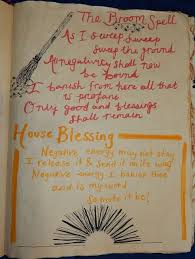 The Broom Spell
As I sweep sweep
sweep the ground
All negativity shall now
be bound
I banish from here all that
is profane
Only good and blessings
shall remain
House Blessing
Negative energy may not stay
I release it & send it on its way
Negative energy I banish thee
and is my word
So mote it be!